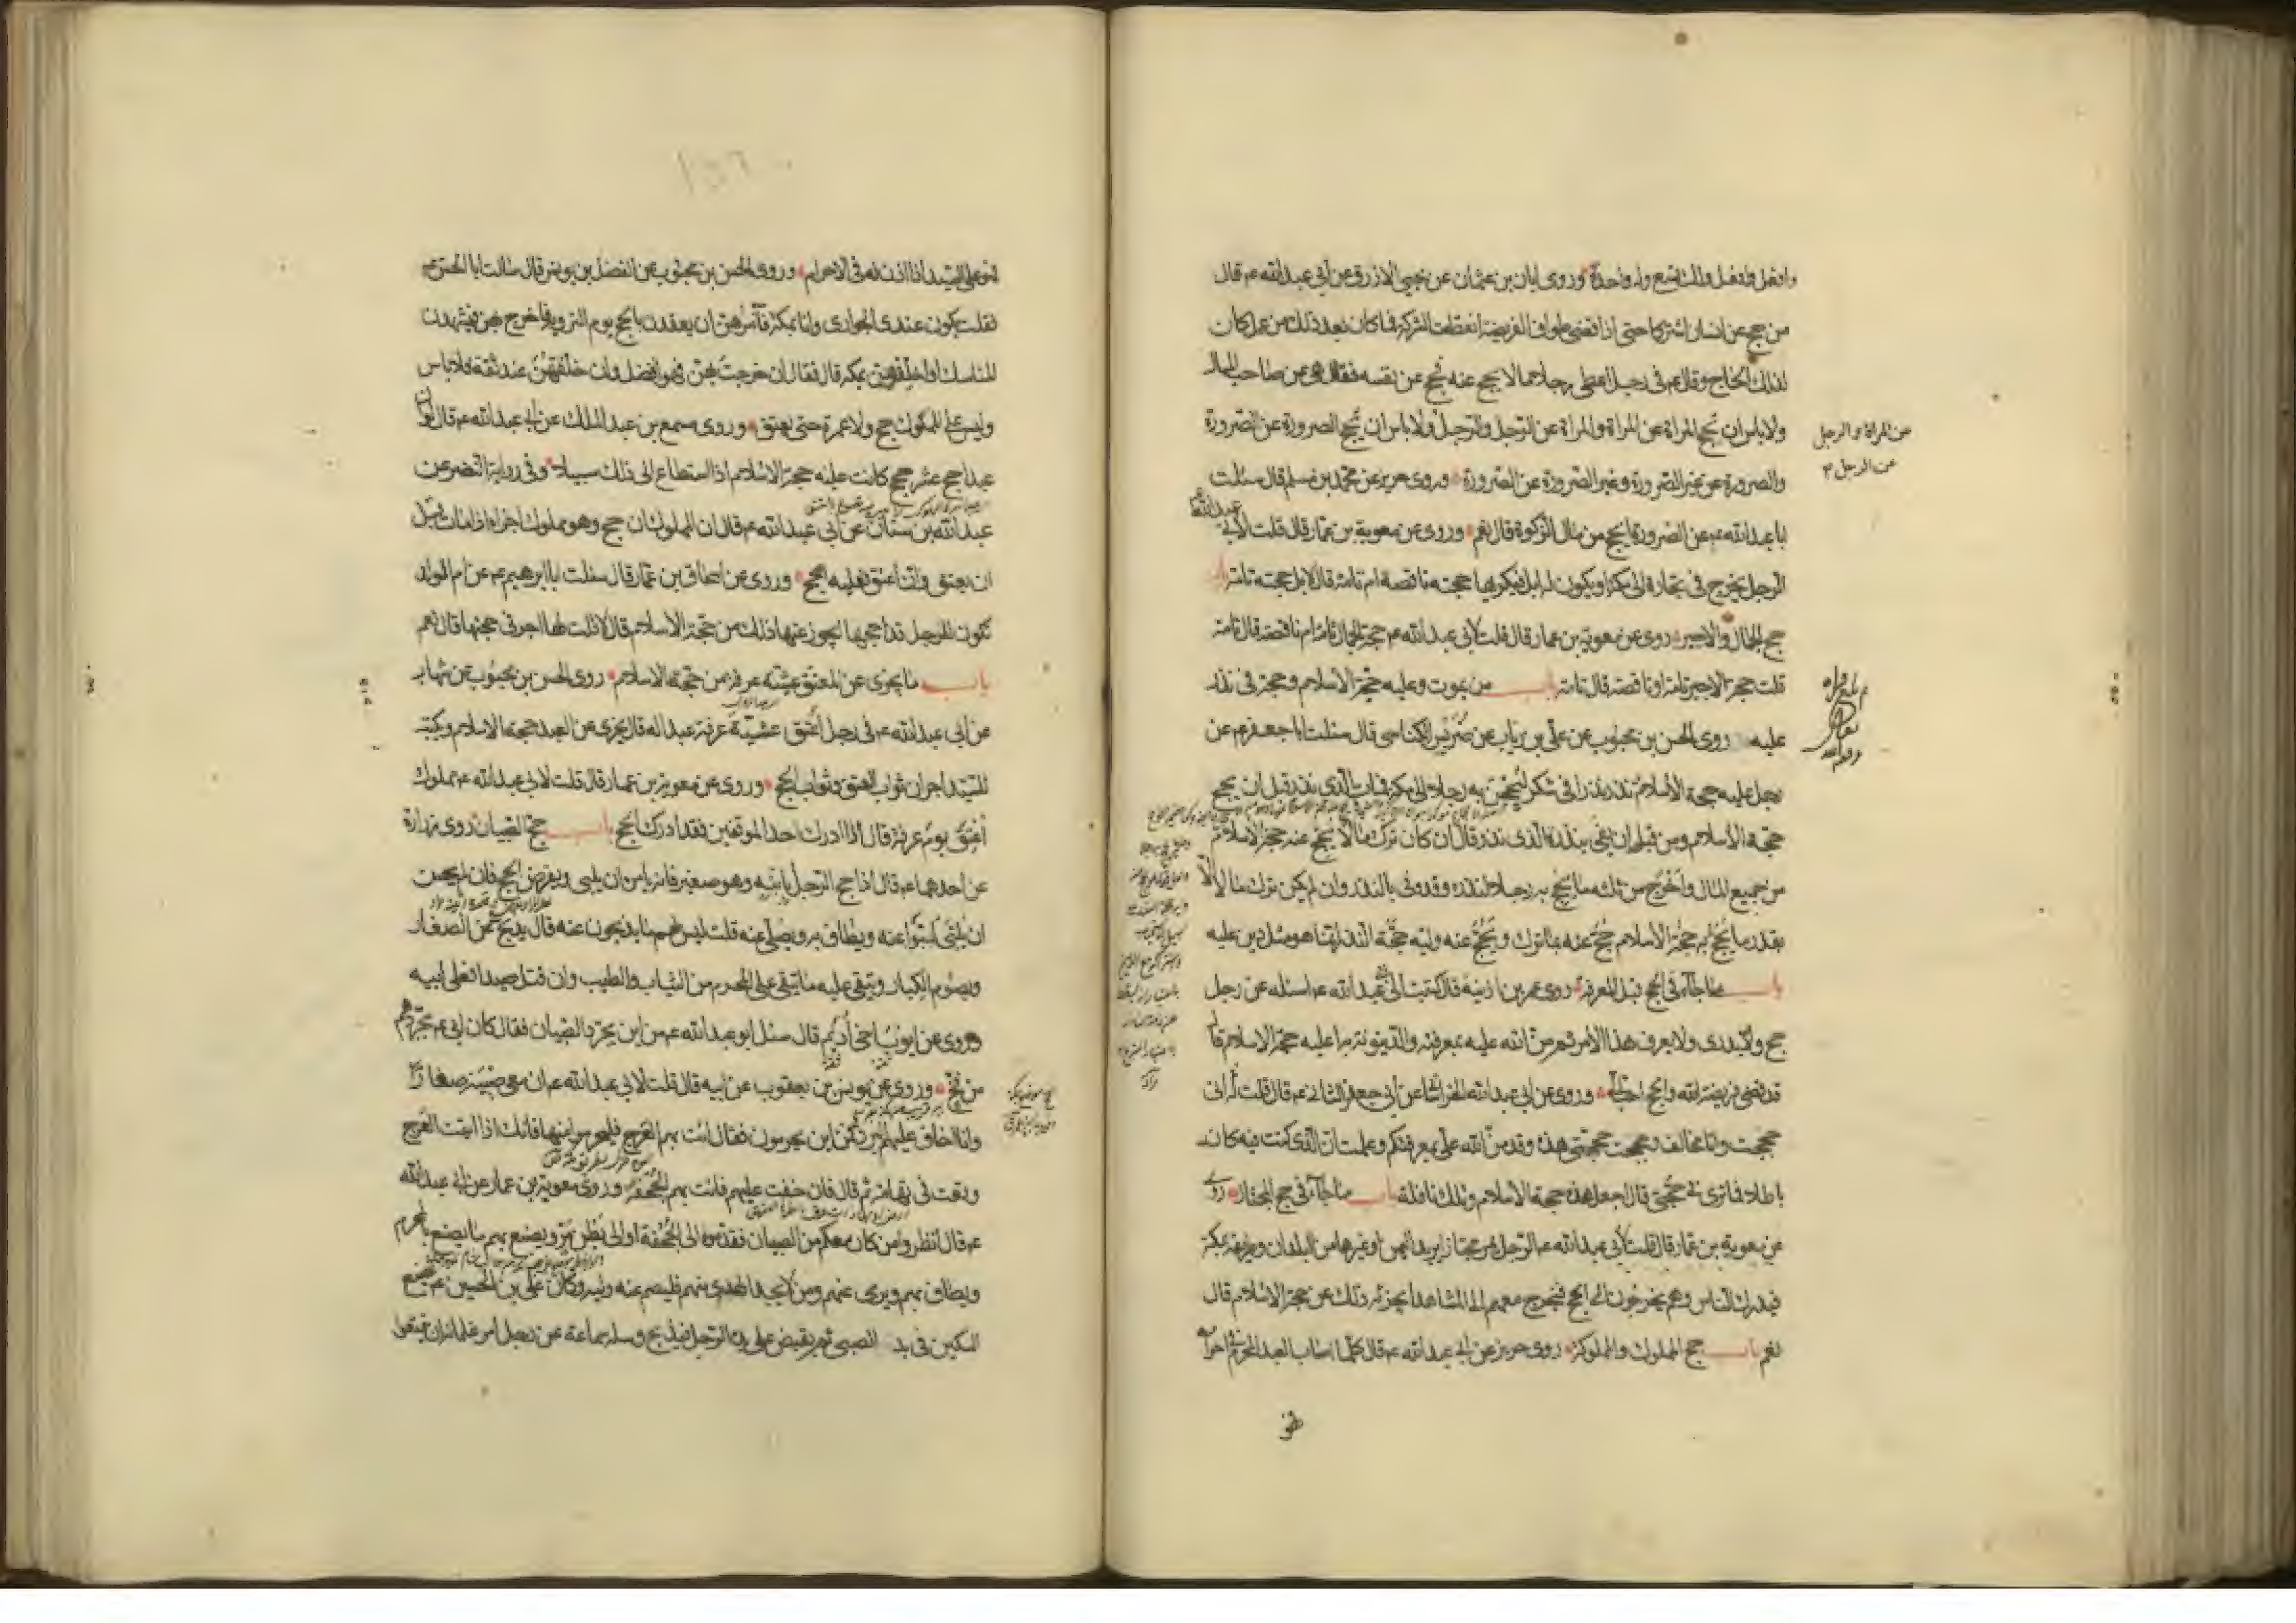 وافعل وافعل ولك تسع وله واحدة وروى ابان بن عثمان عن يحيى الازرق عن ابي عبد الله ع قال
من حج عن انسان اشتركا حتى اذا قضى طواف الفريضة انقطعت الشركة فما كان بعد ذلك من عمل كان
لذلك الحاج وقال ع في رجل اعطى رجلا مالا يحج عنه فحج عن نفسه فقال هي عن صاحب المال
ولا باس ان تحج المراة عن المراة والمراة عن الرجل والرجل ولا باس ان يحج الصرورة عن الصرورة
عن المراة والرجل
عن الرجل
والصرورة عن غير الصرورة وغير الصرورة عن الصرورة وروى حريز عن محمد بن مسلم قال سئلت
ابا عبد الله ع عن الصرورة ايحج من مال الزكوة قال نعم وروى عن معوية بن عمار قال قلت لابي عبد الله ع
الرجل يخرج في تجارة الى مكة او يكون له ابل فيكريها حجته ناقصة ام تامة قال لا بل حجته تامة باب
حج الجمال والاجير روى عن معوية بن عمار قال قلت لابي عبد الله ع حجة الجمال تامة ام ناقصة قال تامة
قلت حجة الاجير تامة او ناقصة قال تامة باب من يموت وعليه حجة الاسلام وحجة في نذر
عليه روى الحسن بن محبوب عن علي بن رياب عن ضريس الكناسي قال سئلت ابا جعفر ع عن
رجل عليه حجة الاسلام نذر نذرا في شكر ليحجن به رجلا الى مكة فمات الذي نذر قبل ان يحج
حجة الاسلام ومن قبل ان يفي بنذره الذي نذر قال ان كان ترك مالا يحج عنه حجة الاسلام
من جميع المال واخرج من ثلثه ما يحج به رجلا لنذره وقد وفى بالنذر وان لم يكن ترك مالا الا
بقدر ما يحج به حجة الاسلام حج عنه بما ترك ويحج عنه وليه حجة النذر انما هو مثل دين عليه
باب ما جاء في الحج قبل المعرفة روى عمر بن اذينة قال كتبت الى ابي عبد الله ع اسئله عن رجل
حج ولا يدري ولا يعرف هذا الامر ثم من الله عليه بمعرفته والدينونة به اعليه حجة الاسلام قال
قد قضى فريضة الله والحج احب الي وروى عن ابي عبد الله الخراساني عن ابي جعفر الثاني ع قال قلت له اني
حججت وانا مخالف وحججت حجتي هذه وقد من الله علي بمعرفتكم وعلمت ان الذي كنت فيه كان
باطلا فما ترى في حجتي قال اجعل هذه حجة الاسلام وتلك نافلة باب ما جاء في حج المجتاز روى
عن معوية بن عمار قال قلت لابي عبد الله ع الرجل يمر مجتازا يريد اليمن او غيرها من البلدان وطريقه بمكة
فيدرك الناس وهم يخرجون الى الحج فيخرج معهم الى المشاهد ايجزئه ذلك عن حجة الاسلام قال
نعم باب حج المملوك والمملوكة روى حريز عن ابي عبد الله ع قال كلما اصاب العبد المحرم في احرامه
فهو
فهو على السيد اذا اذن له في الاحرام وروى الحسن بن محبوب عن الفضل بن يونس قال سالت ابا الحسن ع
فقلت يكون عندي الجواري وانا بمكة فآمرهن ان يعقدن بالحج يوم التروية فاخرج بهن فيشهدن
المناسك او اخلفهن بمكة قال فقال ان خرجت بهن فهو افضل وان خلفتهن عند ثقة فلا باس
وليس على المملوك حج ولا عمرة حتى يعتق وروى مسمع بن عبد الملك عن ابي عبد الله ع قال لو ان
عبدا حج عشر حجج كانت عليه حجة الاسلام اذا استطاع الى ذلك سبيلا وفي رواية النضر عن
عبد الله بن سنان عن ابي عبد الله ع قال ان المملوك ان حج وهو مملوك اجزاه اذا مات قبل
ان يعتق وان اعتق فعليه الحج وروى عن اسحاق بن عمار قال سئلت ابا ابرهيم ع عن ام الولد
تكون للرجل قد احجها ايجوز عنها ذلك من حجة الاسلام قال لا قلت لها اجر في حجتها قال نعم
باب ما يجزي عن المعتق عشية عرفة من حجة الاسلام روى الحسن بن محبوب عن شهاب
عن ابي عبد الله ع في رجل اعتق عشية عرفة عبدا له قال يجزي عن العبد حجة الاسلام ويكتب
للسيد اجران ثواب العتق وثواب الحج وروى عن معوية بن عمار قال قلت لابي عبد الله ع مملوك
اعتق يوم عرفة قال اذا ادرك احد الموقفين فقد ادرك الحج باب حج الصبيان روى زرارة
عن احدهما ع قال اذا حج الرجل بابنه وهو صغير فانه يامره ان يلبي ويفرض الحج فان لم يحسن
ان يلبي لبوا عنه ويطاف به ويصلى عنه قلت ليس لهم ما يذبحون عنه قال يذبح عن الصغار
ويصوم الكبار ويتقى عليه ما يتقى على المحرم من الثياب والطيب وان قتل صيدا فعلى ابيه
وروى عن ايوب اخي اديم قال سئل ابو عبد الله ع من اين يجرد الصبيان فقال كان ابي ع يجردهم
من فخ وروى عن يونس بن يعقوب عن ابيه قال قلت لابي عبد الله ع ان معي صبية صغارا
وانا اخاف عليهم البرد فمن اين يحرمون فقال ائت بهم العرج فليحرموا منها فانك اذا اتيت العرج
وقعت في تهامة ثم قال فان خفت عليهم فائت بهم الجحفة وروى معوية بن عمار عن ابي عبد الله
ع قال انظروا من كان معكم من الصبيان فقدموه الى الجحفة او الى بطن مر ويصنع بهم ما يصنع بالمحرم
ويطاف بهم ويرمى عنهم ومن لا يجد الهدي منهم فليصم عنه وليه وكان علي بن الحسين ع يضع
السكين في يد الصبي ثم يقبض على يده الرجل فيذبح وسئله سماعة عن رجل امر غلمانه ان يتمتعوا